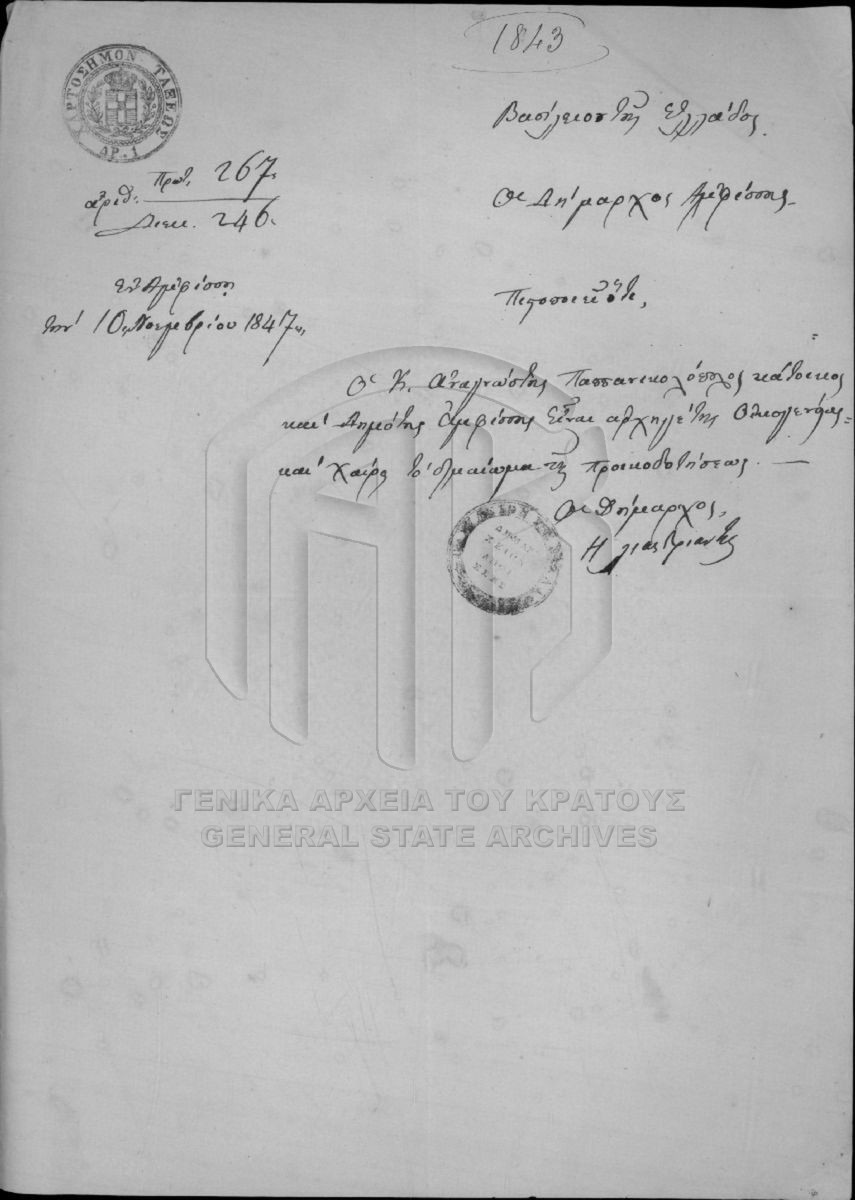 1843
ΧΑΡΤΟΣΗΜΟΝ ΤΑΞΕΩΣ
ΑΡ. 1
Βασίλειον της Ελλάδος
αριθ. Πρωτ. 267
Διεκ. 246.
Ο Δήμαρχος Αμφίσσης
Εν Αμφίσση
την 10 Νοεμβρίου 1847
Πιστοποιεί ότι,
Ο Κ. Αναγνώστης Παππανικολόπολος κάτοικος
και Δημότης Αμφίσσης είναι αρχηγέτης Οικογενείας
και χαίρει το δικαίωμα της προικοδοτήσεως.
Ο Δήμαρχος,
ΓΕΝΙΚΑ ΑΡΧΕΙΑ ΤΟΥ ΚΡΑΤΟΥΣ
GENERAL STATE ARCHIVES